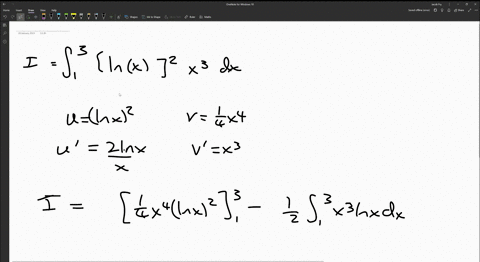 I = ∫₁³ [ln(x)]² x³ dx
u = (lnx)² v = ¼x⁴
u' = 2lnx/x v' = x³
I = [¼x⁴(lnx)²]₁³ − ½∫₁³ x³lnxdx